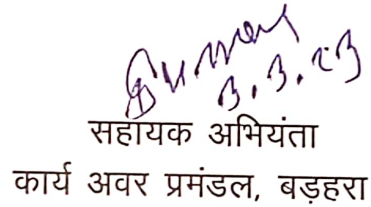 3.3.23
सहायक अभियंता
कार्य अवर प्रमंडल, बड़हरा